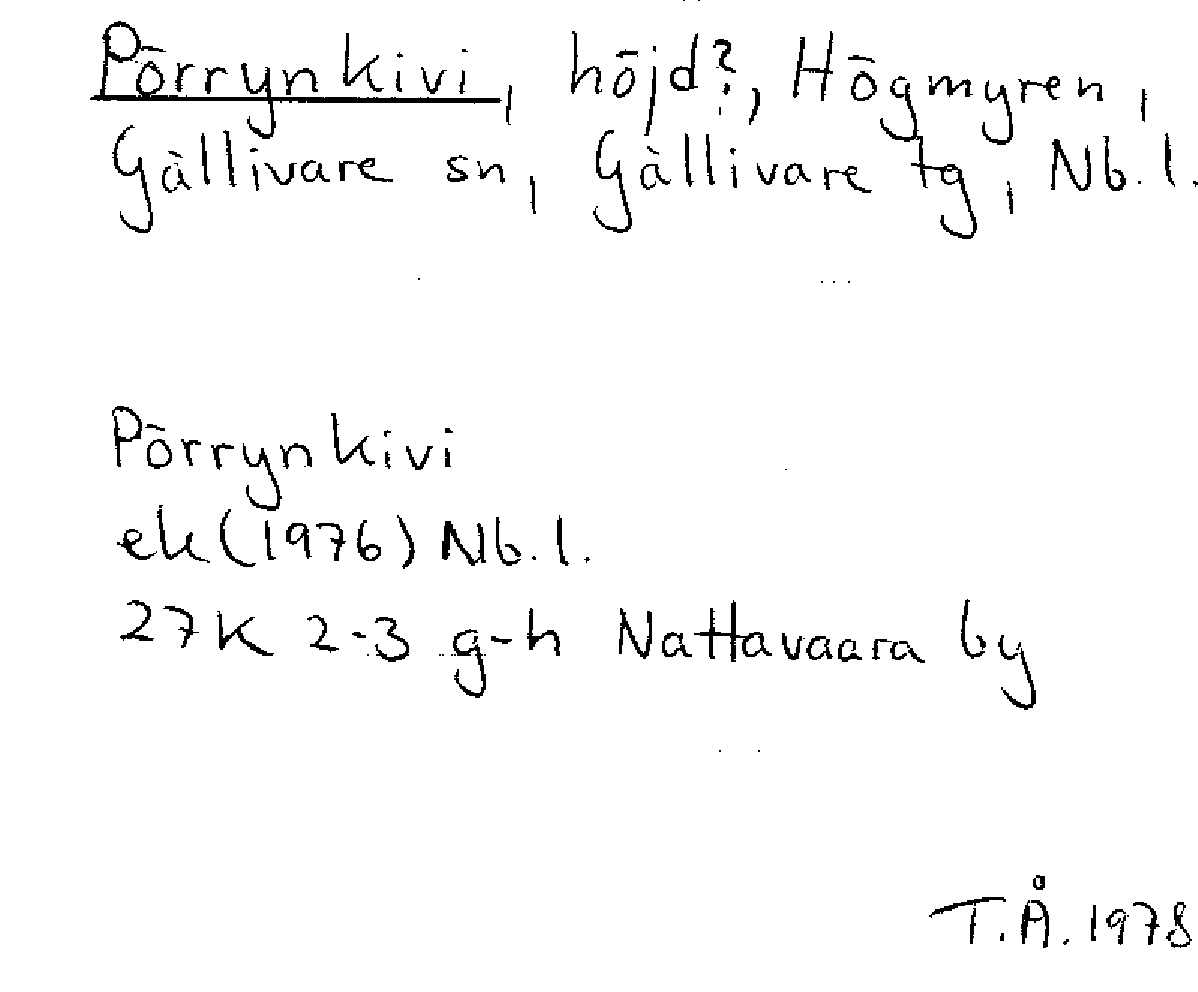 Pörrynkivi, höjd?, Högmyren,
Gällivare sn, Gällivare tg, Nb.l.
Pörrynkivi
ek (1976) Nb.l.
27K 2-3 g-h Nattavaara by
T.Å. 1978